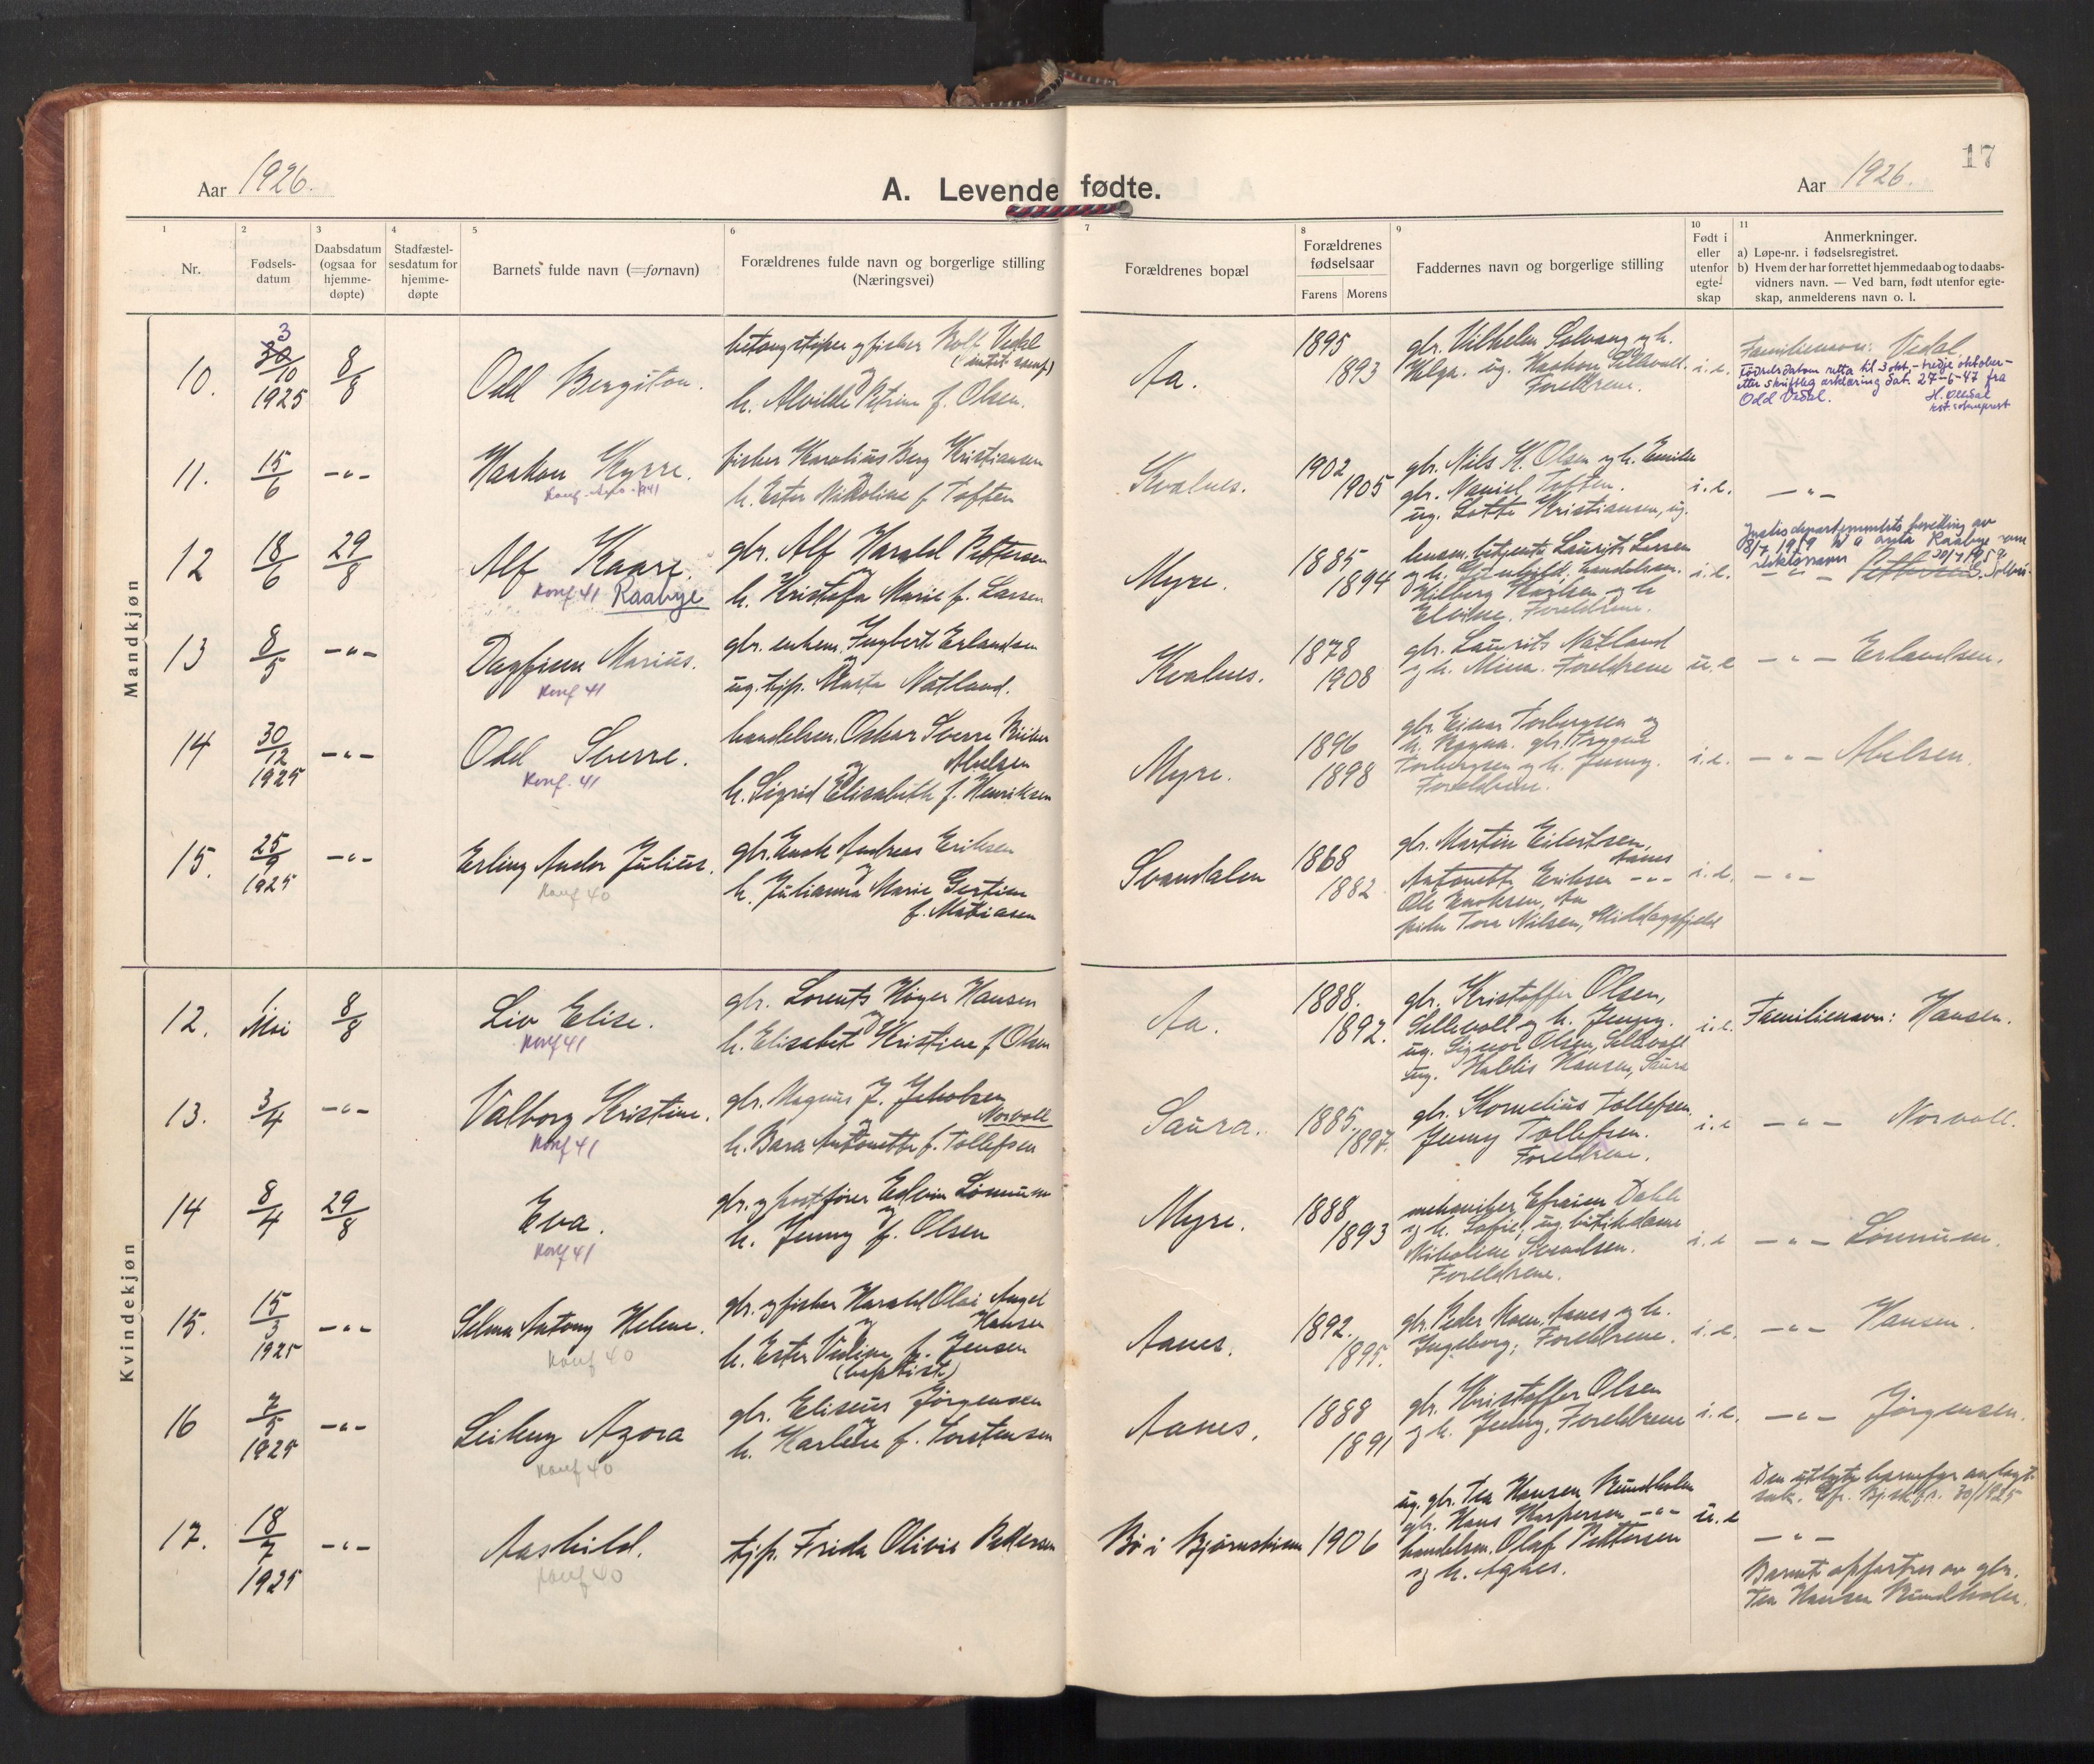 17
Aar 1926.
A. Levende fødte.
Aar 1926.
1 2 3 4 5 6 7 8 9 10 11
Nr.
Fødsels-
datum
Daabsdatum
(ogsaa for
hjemme-
døpte)
Stadfæstel-
sesdatum for
hjemme-
døpte
Barnets fulde navn (=fornavn)
Forældrenes fulde navn og borgerlige stilling
(Næringsvei)
Forældrenes bopæl
Forældrenes
fødselsaar
Farens Morens
Faddernes navn og borgerlige stilling
Født i
eller
utenfor
egte-
skap
Anmerkninger.
a) Løpe-nr. i fødselsregistret.
b) Hvem der har forrettet hjemmedaab og to daabs-
vidners navn. — Ved barn, født utenfor egte-
skap, anmelderens navn o. l.
Mandkjøn
10.
3
30/10
1925
8/8
Odd Bergiton.
og fisker Vedal
h. Alvilde Petrine f. Olsen.
Aa.
1895
1893
gbr. Vilhelm Solvang og h.
Helga. ug. Haakon
Foreldrene.
i.e.
Familienavn: Vedal.
Fødselsdatom retta til 3 okt. - tredje oktober -
etter skriftleg erklæring dat. 27-6-47 fra
Odd Vedal.
11.
15/6
-"-
Haakon Kyrre.
fisker Karolius Berg Kristiansen
h. Ester Nikoline f. Toften
Kvalnes.
1902
1905
gbr. Nils K. Olsen og h. Emilie
gbr. Daniel Toften.
ug. Lotte Kristiansen, ug.
i.e.
-"-
12
18/6
29/8
Alf Kaare.
Konf 41 Raabye
gbr. Alf Harald Pettersen
og
h. Kristofa Marie f. Larsen
Myre.
1885
1894
Laurits Larsen
og h. handelsm.
Hilberg Karlsen og h
Elvine. Foreldrene.
i.e.
Justisdepartementets bevilling av
8/7 1959 til å anta Raabye som
slektsnavn
-"- Pettersen
13
8/5
-"-
Dagfinn Marius.
Konf 41
gbr. enkem. Ingbert Erlandsen
og
ug. tjp. Marta Natland.
Kvalnes.
1878
1908
gbr. Laurits Natland
og h. Mina. Foreldrene
u.e
-"- Erlandsen.
14
30/12
1925
-"-
Odd Sverre.
Konf. 41
handelsm. Oskar Sverre
Abelsen
og
h. Sigrid Elisabeth f. Henriksen
Myre.
1896
1898
gbr. Einar Torbergsen og
h. Ragna. gbr. Trygve
Torbergsen og h. Jenny.
Foreldrene.
i.e.
-"- Abelsen.
15.
25/9
1925
-"-
Erling Ander Julius.
Konf 40
gbr. Enok Andreas Eriksen
og
h. Julianna Marie Gertine
f. Matiasen
Svandalen
1868
1882
gbr. Martin Eilertsen,
Aanes
Antonette Eriksen -"-
Ole Enoksen, Aa
pike Tora Nilsen, Middagsfjeld
i.e.
-"-
Kvindekjøn
12.
1
Mai
8/8
Liv Elise.
Konf 41
gbr. Lorents Høyer Hansen
og
h. Elisabet Kristine f. Olsen
Aa.
1888.
1892.
gbr. Kristoffer Olsen,
Sellevoll og h. Jenny.
ug. Signor Olsen, Sellevoll
ug. Haldis Hansen, Saura
i.e.
Familienavn: Hansen.
13.
3/4
-"-
Valborg Kristine.
Konf 41
gbr. Magnus J. Jakobsen
Norvoll
og
h. Bara Antonette f. Tollefsen
Saura.
1885.
1897.
gbr. Kornelius Tollefsen.
Jenny Tollefsen.
Foreldrene.
i.e
-"- Norvoll.
14
8/4
29/8
Eva.
Konf 41
gbr. og postfører Edvin Lønnum
og
h. Jenny f. Olsen
Myre.
1888
1893
mekaniker Efraim Dahl
og h. Sofie, ug. butikdame
Nikoline Sivadsen.
Foreldrene.
i.e
-"- Lønnum.
15.
15/3
1925
-"-
Selma Antony Helene.
Konf 40
gbr. og fisker Harald Olai Angel
Hansen
og
h. Ester Veline f. Jensen
(baptist)
Aanes.
1892.
1895.
gbr. Peder Moen, Aanes og h.
Ingeborg; Foreldrene.
i.e.
-"- Hansen.
16
7/5
1925
-"-
Leikny Azora
Konf 40
gbr. Eliseus Jørgensen
og
h. f. Torstensen
Aanes.
1888
1891
gbr. Kristoffer Olsen
og h. Jenny. Foreldrene
i.e.
-"- Jørgensen.
17.
18/7
1925
-"-
Aashild.
Konf 40
tjp. Frida Olivie Pedersen
Bø i Bjørnskinn
1906
ug. gbr. Tea Hansen Rundholm
gbr. Hans Kaspersen -"-
handelsm. Olaf Pettersen
og h. Agnes.
u.e
Den utlagte barnefar anlagt
sak. Cfr. 30/1925
-"-
Barnet opfostres av gbr.
Tea Hansen Rundholm.